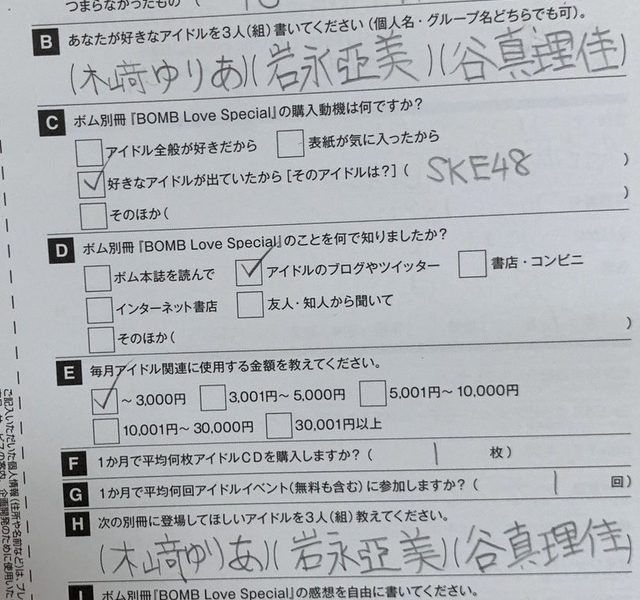 つまらなかったもの（
B あなたが好きなアイドルを3人（組）書いてください（個人名・グループ名どちらでも可）。
（木﨑ゆりあ）（岩永亞美）（谷真理佳）
C ボム別冊『BOMB Love Special』の購入動機は何ですか？
アイドル全般が好きだから 表紙が気に入ったから
好きなアイドルが出ていたから［そのアイドルは？］（ SKE48 ）
そのほか（ ）
D ボム別冊『BOMB Love Special』のことを何で知りましたか？
ボム本誌を読んで アイドルのブログやツイッター 書店・コンビニ
インターネット書店 友人・知人から聞いて
そのほか（ ）
E 毎月アイドル関連に使用する金額を教えてください。
～3,000円 3,001円～5,000円 5,001円～10,000円
10,001円～30,000円 30,001円以上
F 1か月で平均何枚アイドルCDを購入しますか？（ 1 枚）
G 1か月で平均何回アイドルイベント（無料も含む）に参加しますか？（ 1 回）
H 次の別冊に登場してほしいアイドルを3人（組）教えてください。
（木﨑ゆりあ）（岩永亞美）（谷真理佳）
I ボム別冊『BOMB Love Special』の感想を自由に書いてください。
ご記入いただいた個人情報（住所や名前など）は、プレ